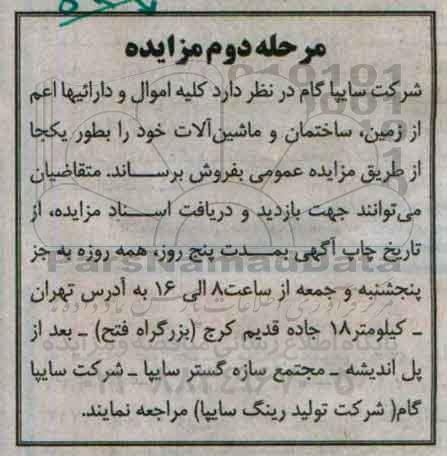 مرحله دوم مزایده
شرکت سایپا گام در نظر دارد کلیه اموال و دارائیها اعم
از زمین، ساختمان و ماشین‌آلات خود را بطور یکجا
از طریق مزایده عمومی بفروش برساند. متقاضیان
می‌توانند جهت بازدید و دریافت اسناد مزایده، از
تاریخ چاپ آگهی بمدت پنج روز، همه روزه به جز
پنجشنبه و جمعه از ساعت۸ الی ۱۶ به آدرس تهران
ـ کیلومتر۱۸ جاده قدیم کرج (بزرگراه فتح) ـ بعد از
پل اندیشه ـ مجتمع سازه گستر سایپا ـ شرکت سایپا
گام( شرکت تولید رینگ سایپا) مراجعه نمایند.
ParsNamadData